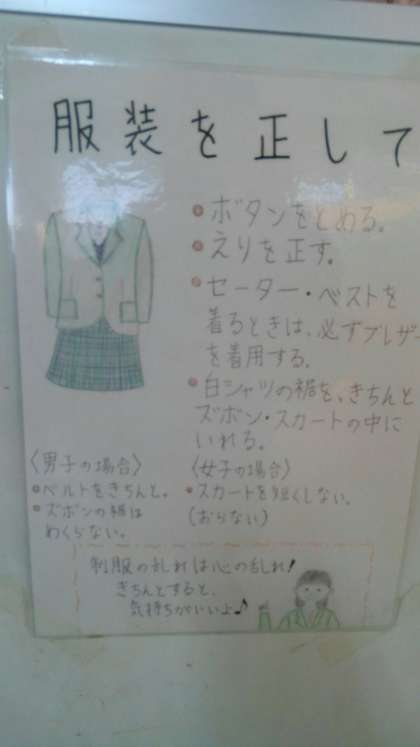 服装を正して
•ボタンをとめる。
•えりを正す。
•セーター・ベストを
着るときは、必ずブレザー
を着用する。
•白シャツの裾を、きちんと
ズボン・スカートの中に
いれる。
〈男子の場合〉
•ベルトをきちんと。
•ズボンの裾は
めくらない。
〈女子の場合〉
•スカートを短くしない。
(おらない)
制服の乱れは心の乱れ!
きちんとすると、
気持ちがいいよ♪